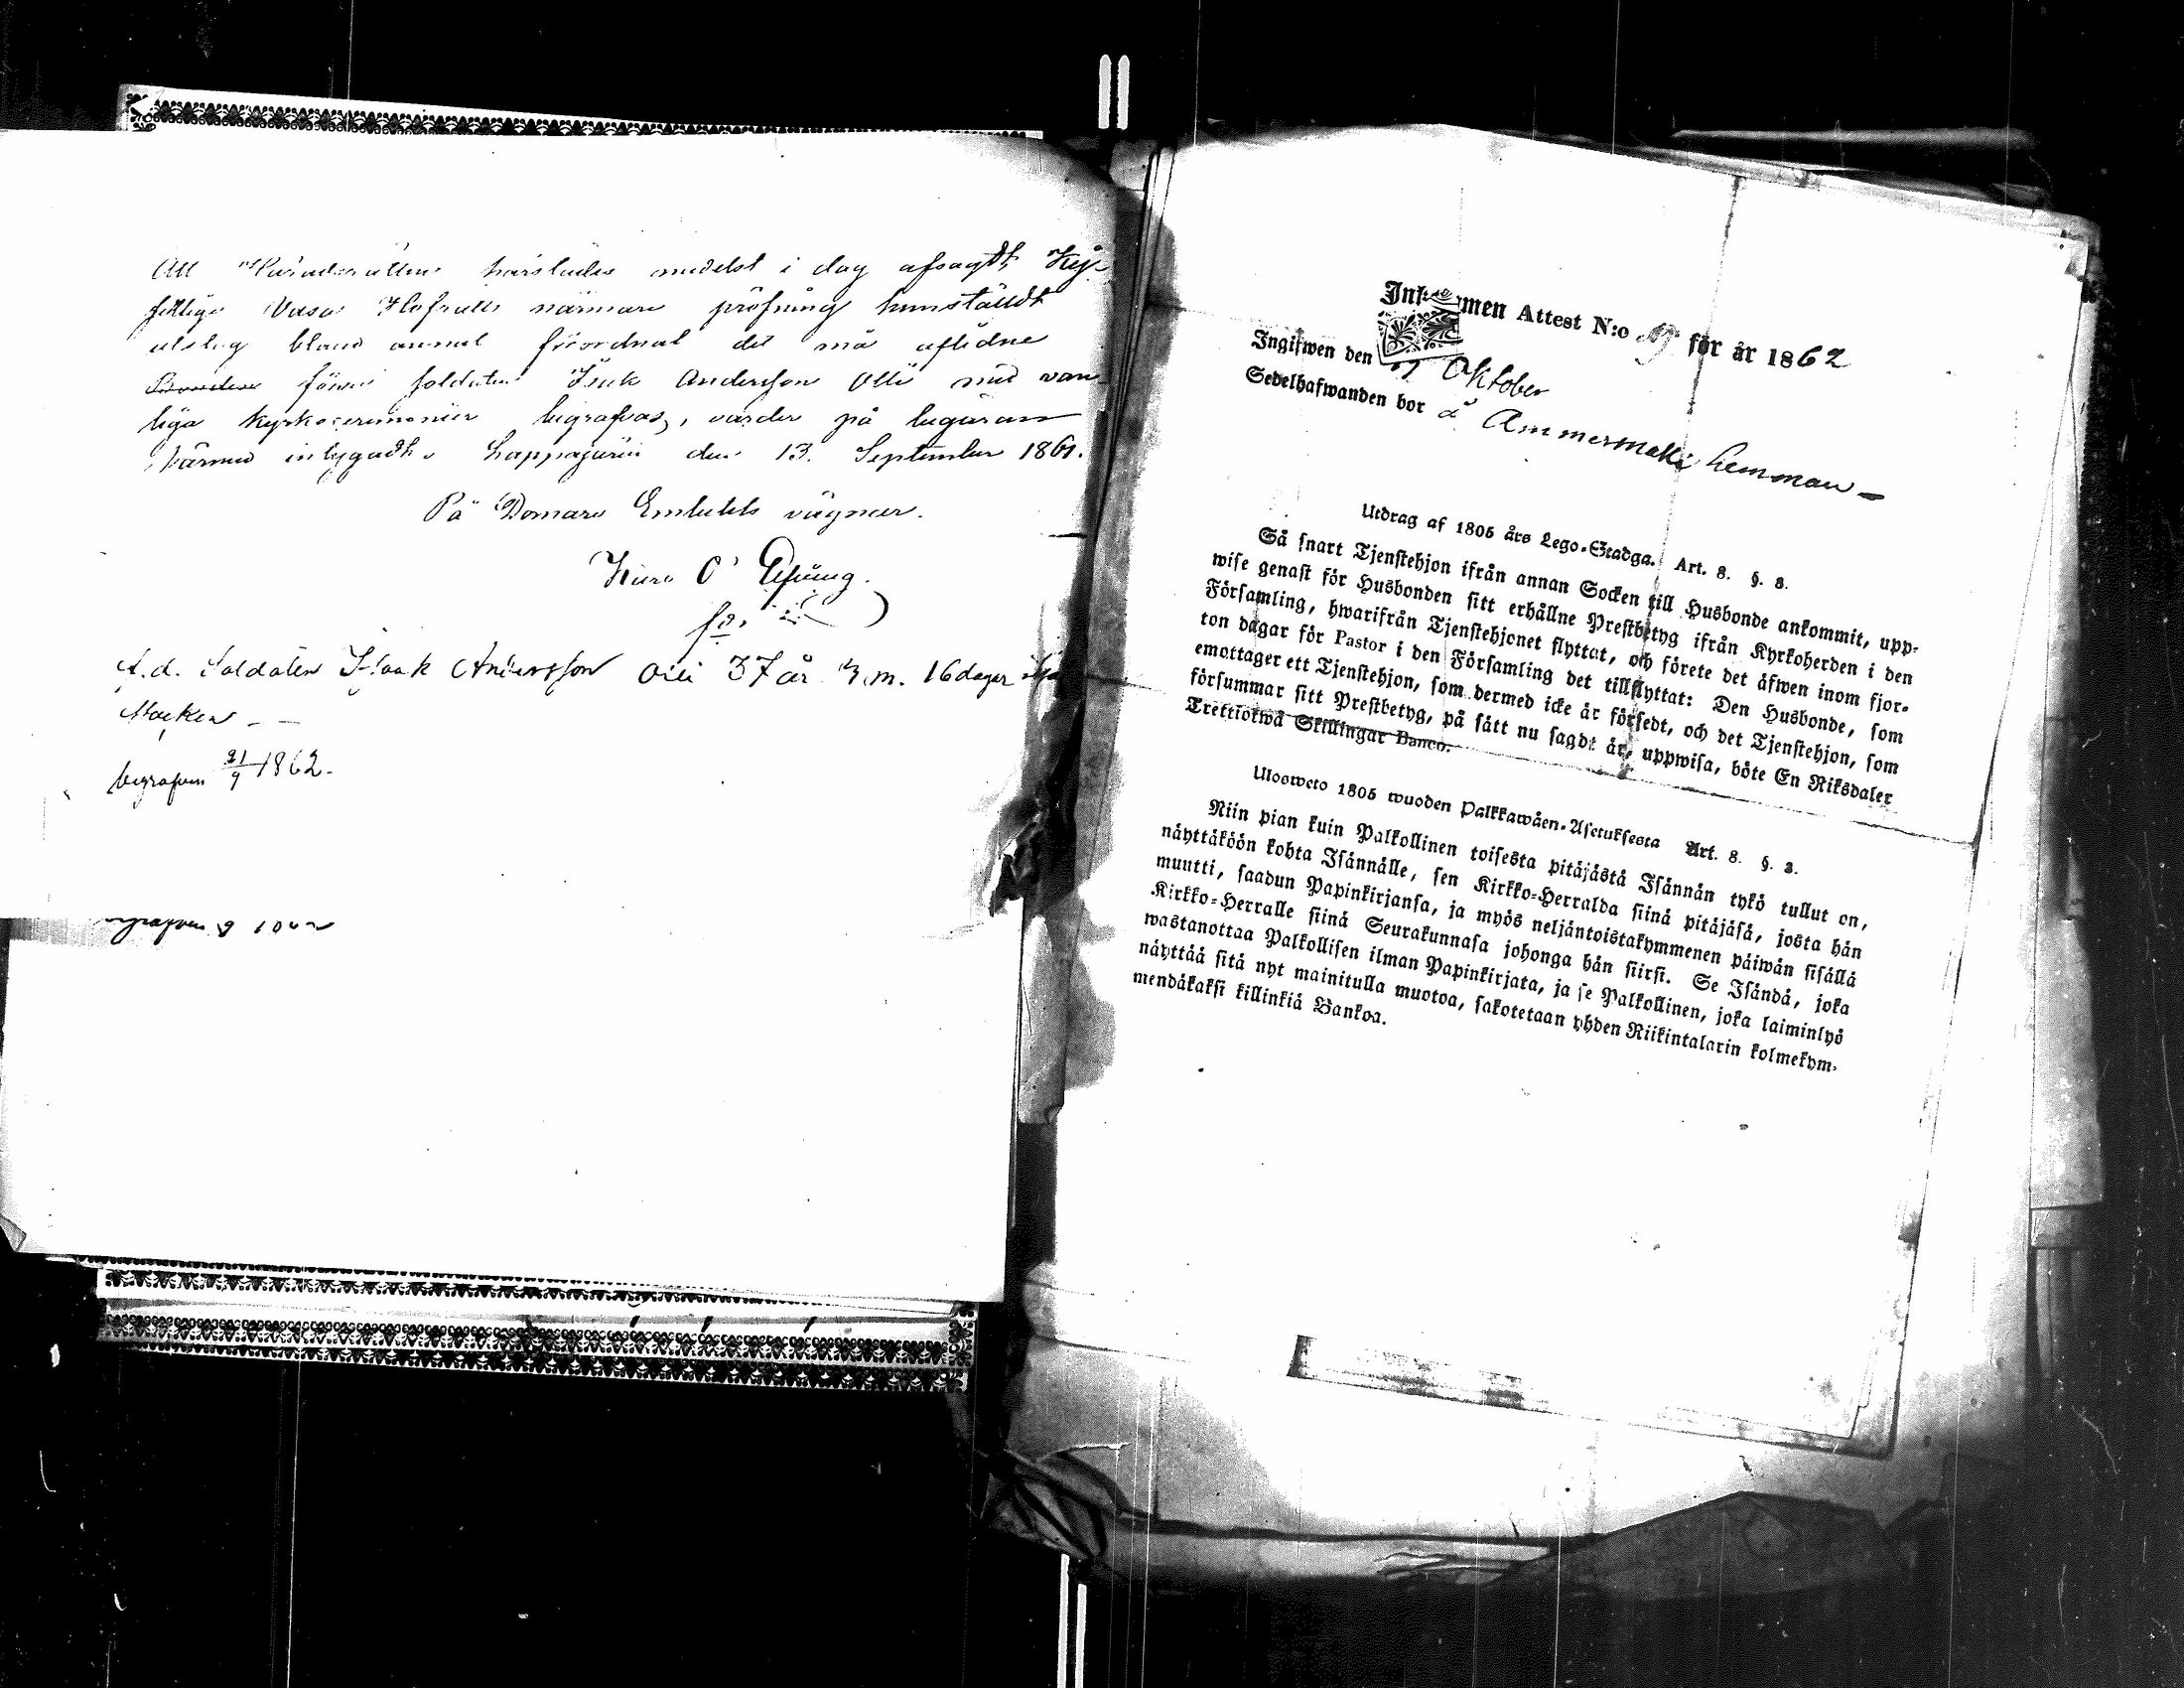 Att Häradsrätten härstädes medelst i dag afsagdt, Kej-
serlige Vasa Hofrätts närmare pröfning hemstäldt
utslag bland annat förordnat det må aflidne
Bonden förre soldaten Isak Andersson Olli med van-
liga kyrkoceremonier begrafvas, varder på begäran
härmed intygadt. Lappajärvi den 13. September 1861.
På Domare Embetets vägnar.
f.d. Soldaten Isaak Andersson Olli 37 år 3 m. 16 dagar
begrafven 21/9 1862.
Inkommen Attest N:o för år 1862
Ingifwen den Oktober
Sedelhafwanden bor å Ammesmäki hemman
Utdrag af 1805 års Lego-Stadga. Art. 8. §. 3.
Så snart Tjenstehjon ifrån annan Socken till Husbonde ankommit, upp-
wise genast för Husbonden sitt erhållne Prestbetyg ifrån Kyrkoherden i den
Församling, hwarifrån Tjenstehjonet flyttat, och förete det äfwen inom fjor-
ton dagar för Pastor i den Församling det tillflyttat: Den Husbonde, som
emottager ett Tjenstehjon, som dermed icke är försedt, och det Tjenstehjon, som
försummar sitt Prestbetyg, på sätt nu sagdt är, uppwisa, böte En Riksdaler
Trettiotwå Skillingar Banco.
Ulosweto 1805 wuoden Palkkawäen-Asetuksesta Art. 8. §. 3.
Niin pian kuin Palkollinen toisesta pitäjästä Isännän tykö tullut on,
näyttäköön kohta Isännälle, sen Kirkko-Herralda siinä pitäjäsä, josta hän
muutti, saadun Papinkirjansa, ja myös neljäntoistakymmenen päiwän sisällä
Kirkko-Herralle siinä Seurakunnasa johonga hän siirsi. Se Isändä, joka
wastanottaa Palkollisen ilman Papinkirjata, ja se Palkollinen, joka laiminlyö
näyttää sitä nyt mainitulla muotoa, sakotetaan yhden Riikintalarin kolmekym-
mendäkaksi killinkiä Bankoa.